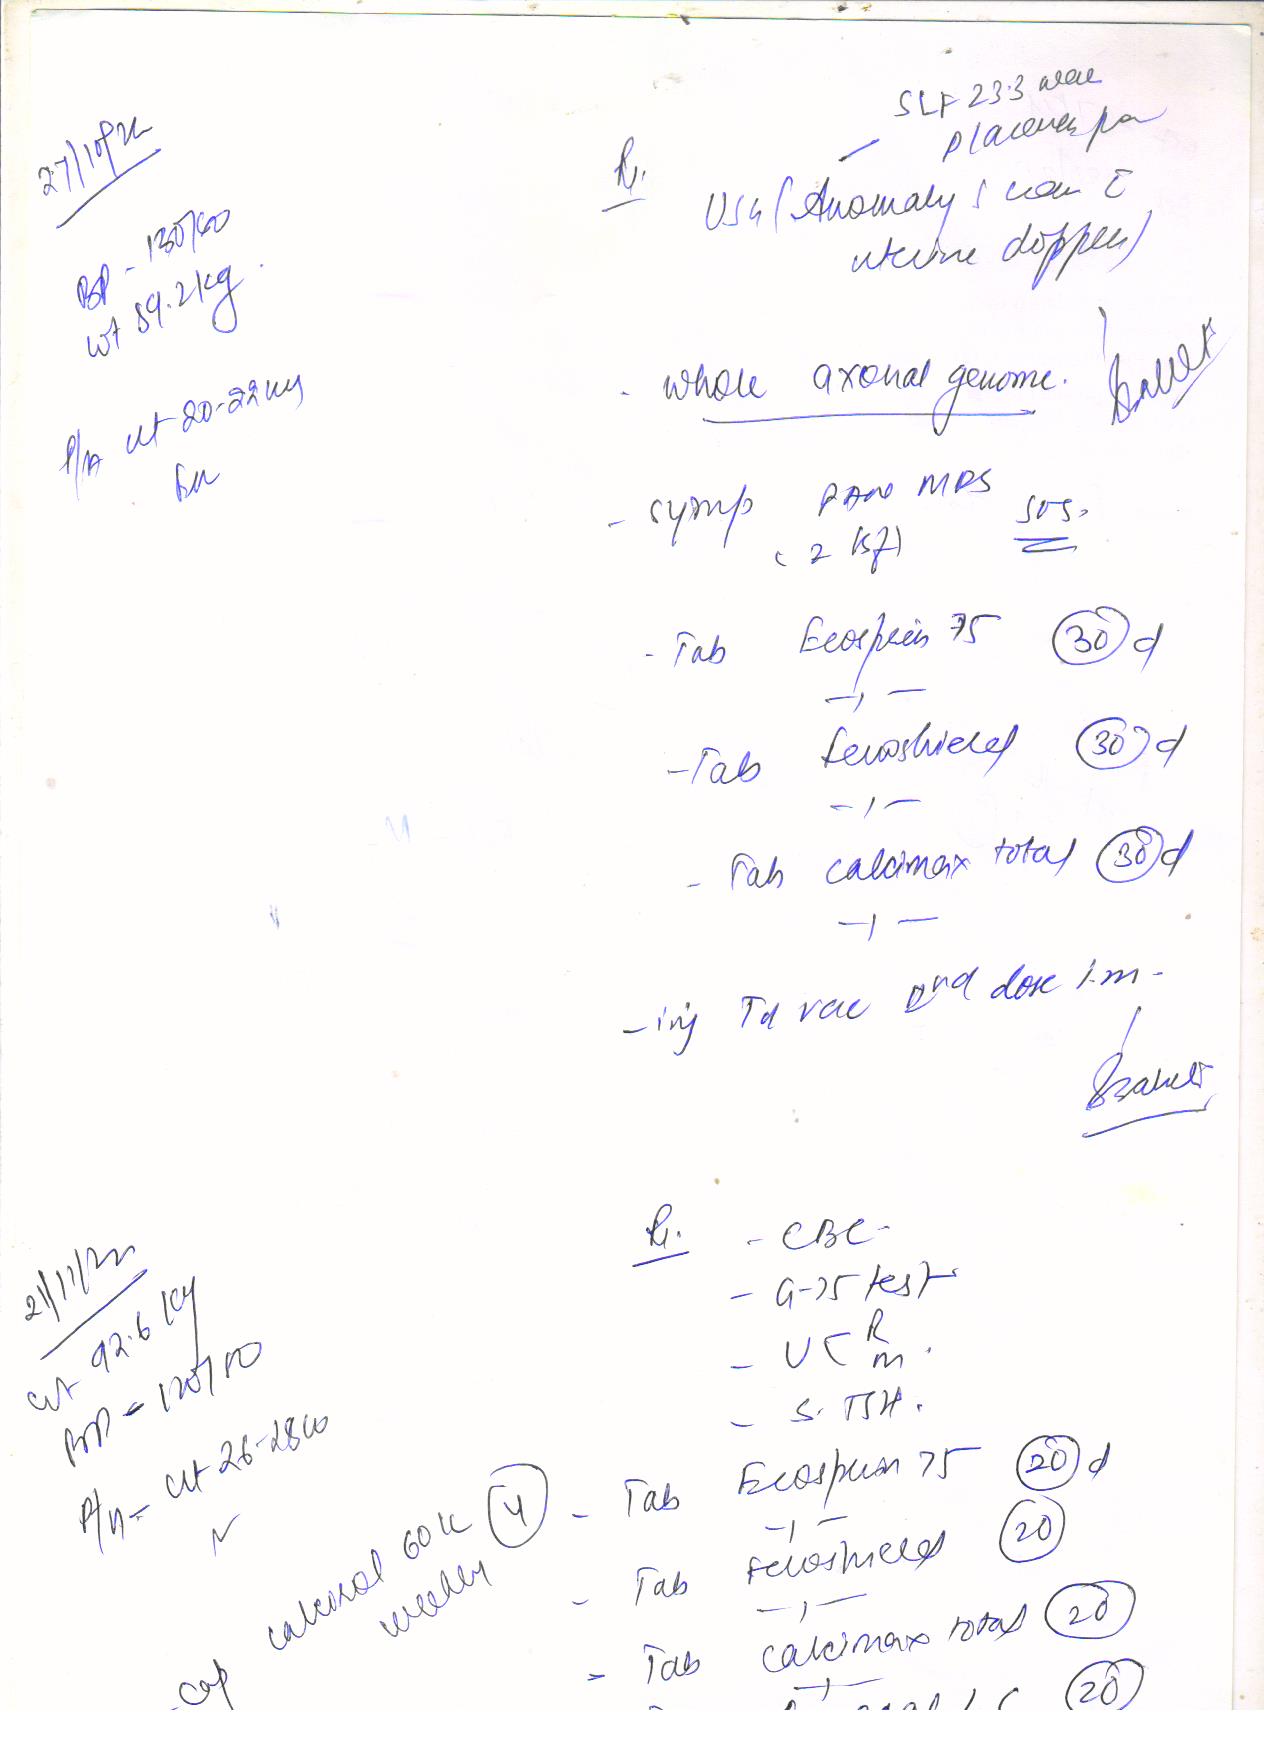 27/10/22
BP - 130/60
wt 89.2 kg.
P/A ut 20-22 wks
SLF 23.3 week
Placenta
R.
USG (Anomaly scan c
uterine doppler)
- whole axonal genome.
- Symp MPS SOS.
(2 tsf)
- Tab Ecosprin 75 30 d
- Tab feroshield 30 d
- Tab calcimax total 30 d
- inj Td vac 2nd dose I.m -
21/11/22
wt 92.6 kg
BP - 120/80
P/A - ut 26-28 w
R. - CBC -
- G-75 test
- U R/m.
- S. TSH.
- Tab Ecosprin 75 20 d
- Tab feroshield 20
- Tab calcimax total 20
20
- Cap calcirol 60 K 4
weekly